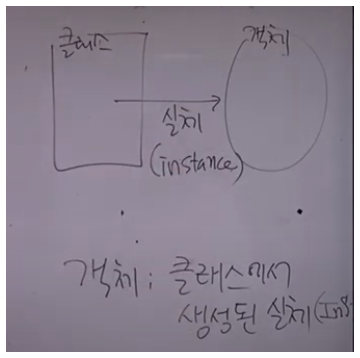 클래스
객체
실체
(instance)
객체; 클래스에서
생성된 실체(Ins